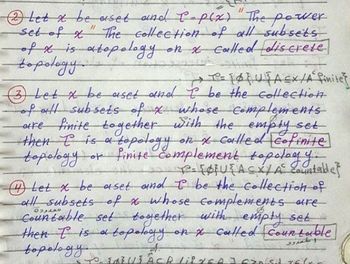 ② Let x be a set and τ = p(x) "The power
set of x" The collection of all subsets
of x is a topology on x called discrete
topology.
τ = {φ}∪{A⊆x / Aᶜ finite}
③ Let x be a set and τ be the collection
of all subsets of x whose complements
are finite together with the empty set
then τ is a topology on x called cofinite
topology or finite complement topology.
τ = {φ}∪{A⊆x / Aᶜ countable}
④ Let x be a set and τ be the collection of
all subsets of x whose complements are
countable set together with empty set
then τ is a topology on x called countable
topology.